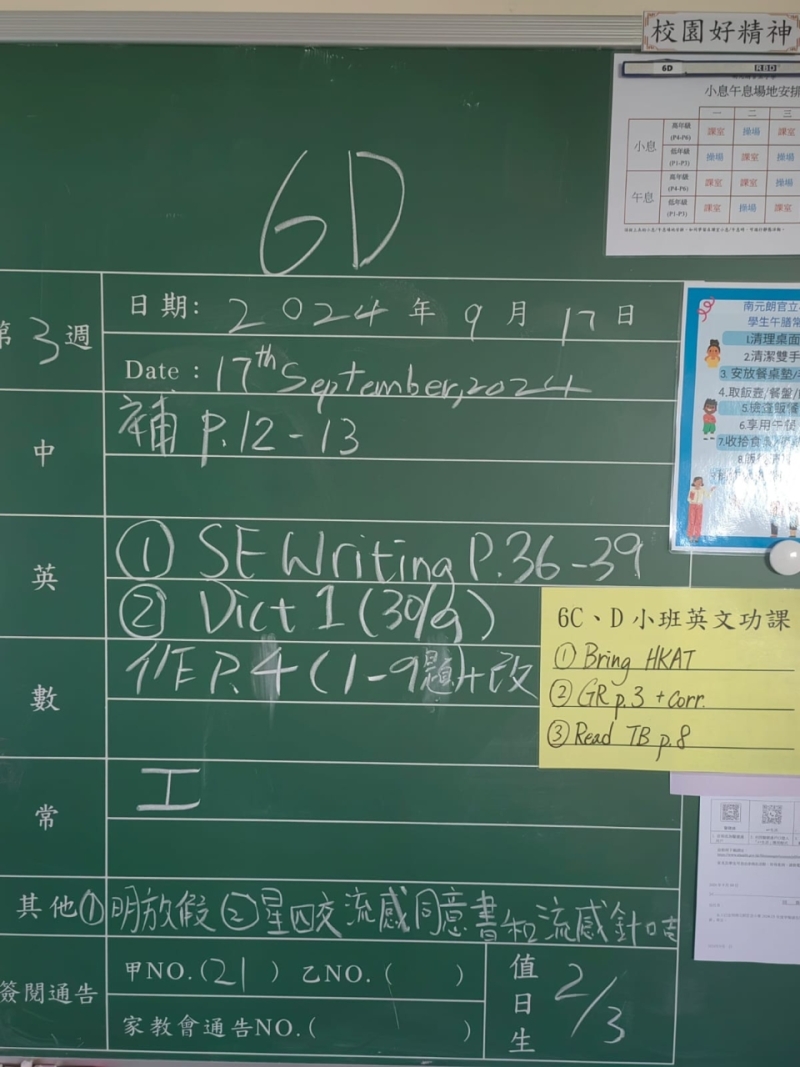 校園好精神
6D RBD
小息午息場地安排
一 二 三
小息 高年級 (P4-P6) 課室 操場 課室
低年級 (P1-P3) 操場 課室 操場
午息 高年級 (P4-P6) 課室 課室 操場
低年級 (P1-P3) 課室 操場 課室
6D
第3週
日期: 2024年9月17日
Date : 17th September, 2024
中 補 P.12-13
英 ① SE Writing P.36-39
② Dict 1 (30/9)
數 作 P.4 (1-9題)+改
常 工
其他 ①明放假 ②星四交流感同意書和流感針咭
簽閱通告 甲NO.(21) 乙NO.( )
家教會通告NO.( )
值日生 2/3
南元朗官立
學生午膳常
1.清理桌面
2.清潔雙手
3.安放餐桌墊/
4.取飯壼/餐盤/
5.檢查飯餐
6.享用午餐
7.收拾食
6C、D小班英文功課
① Bring HKAT
② GR p.3 + corr.
③ Read TB p.8